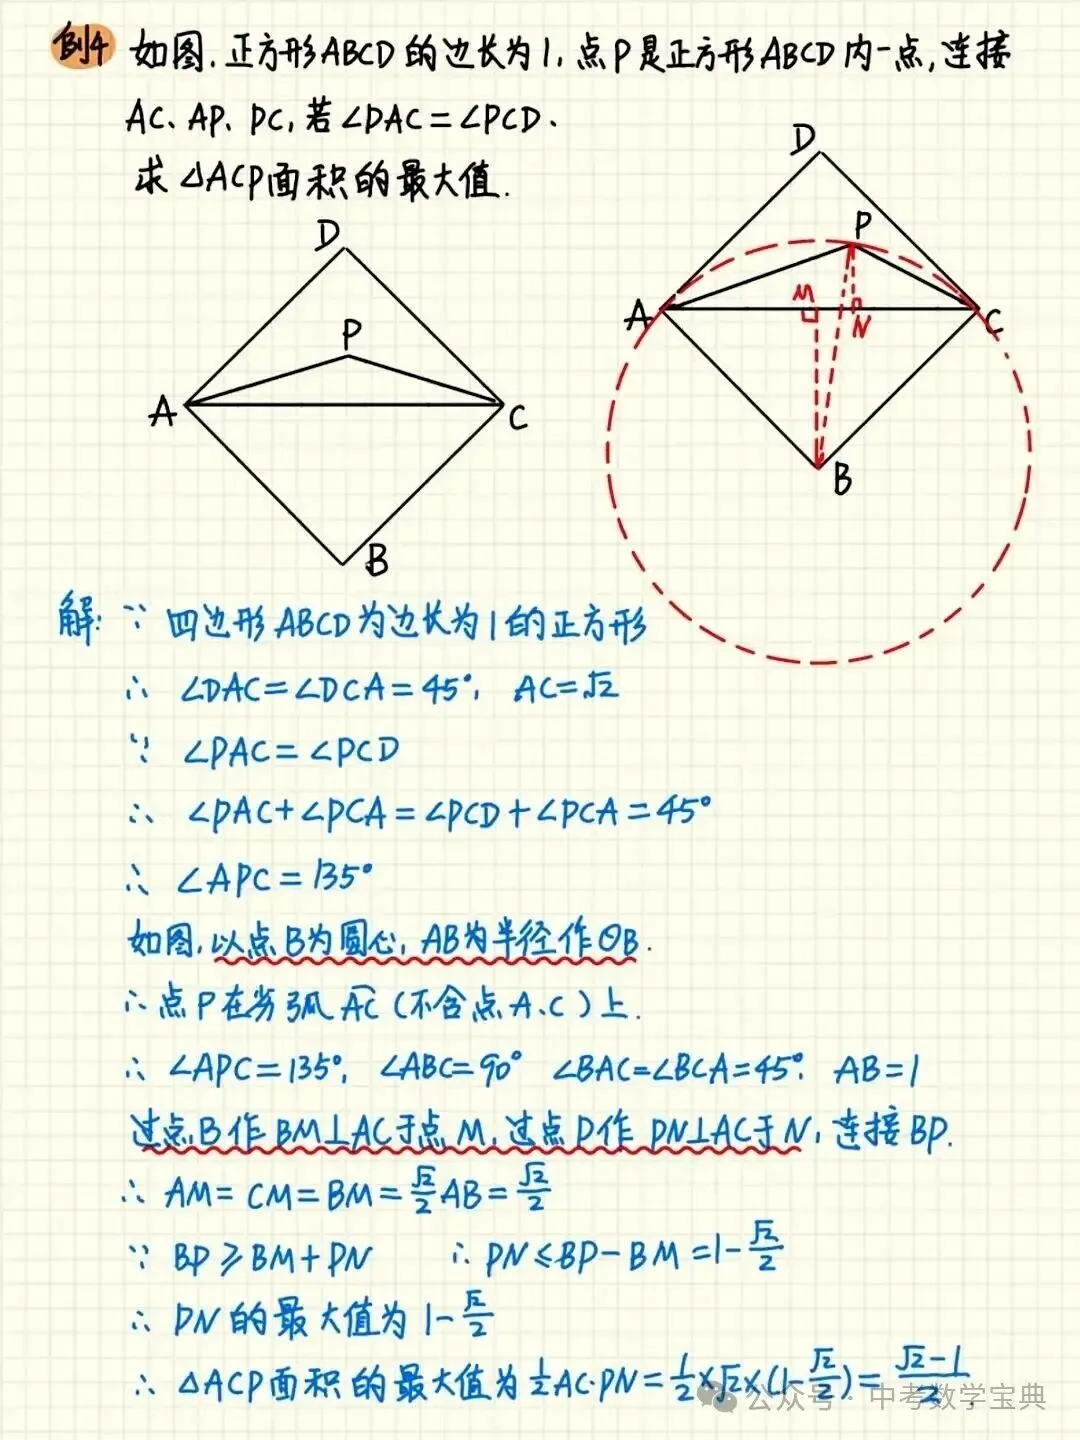 例4 如图,正方形ABCD的边长为1,点P是正方形ABCD内一点,连接
AC、AP、PC,若∠DAC=∠PCD、
求△ACP面积的最大值.
D
P
A
C
B
D
P
A
M
N
C
B
解: ∵ 四边形ABCD为边长为1的正方形
∴ ∠DAC=∠DCA=45°, AC=√2
∵ ∠PAC=∠PCD
∴ ∠PAC+∠PCA=∠PCD+∠PCA=45°
∴ ∠APC=135°
如图,以点B为圆心,AB为半径作⊙B.
∴点P在劣弧AC(不含点A、C)上.
∴ ∠APC=135°, ∠ABC=90° ∠BAC=∠BCA=45°. AB=1
过点B作BM⊥AC于点M,过点P作PN⊥AC于N,连接BP.
∴ AM=CM=BM=√2/2AB=√2/2
∵ BP≥BM+PN ∴ PN≤BP-BM=1-√2/2
∴ PN的最大值为1-√2/2
∴ △ACP面积的最大值为1/2AC·PN=1/2×√2×(1-√2/2)=(√2-1)/2.
公众号·中考数学宝典